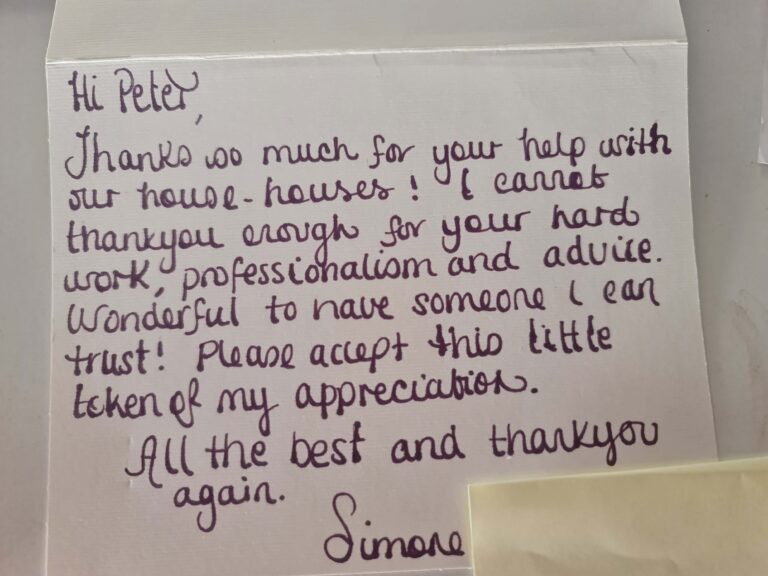 Hi Peter,
Thanks so much for your help with
our house-houses! I cannot
thankyou enough for your hard
work, professionalism and advice.
Wonderful to have someone I can
trust! Please accept this little
token of my appreciation.
All the best and thankyou
again.
Simone